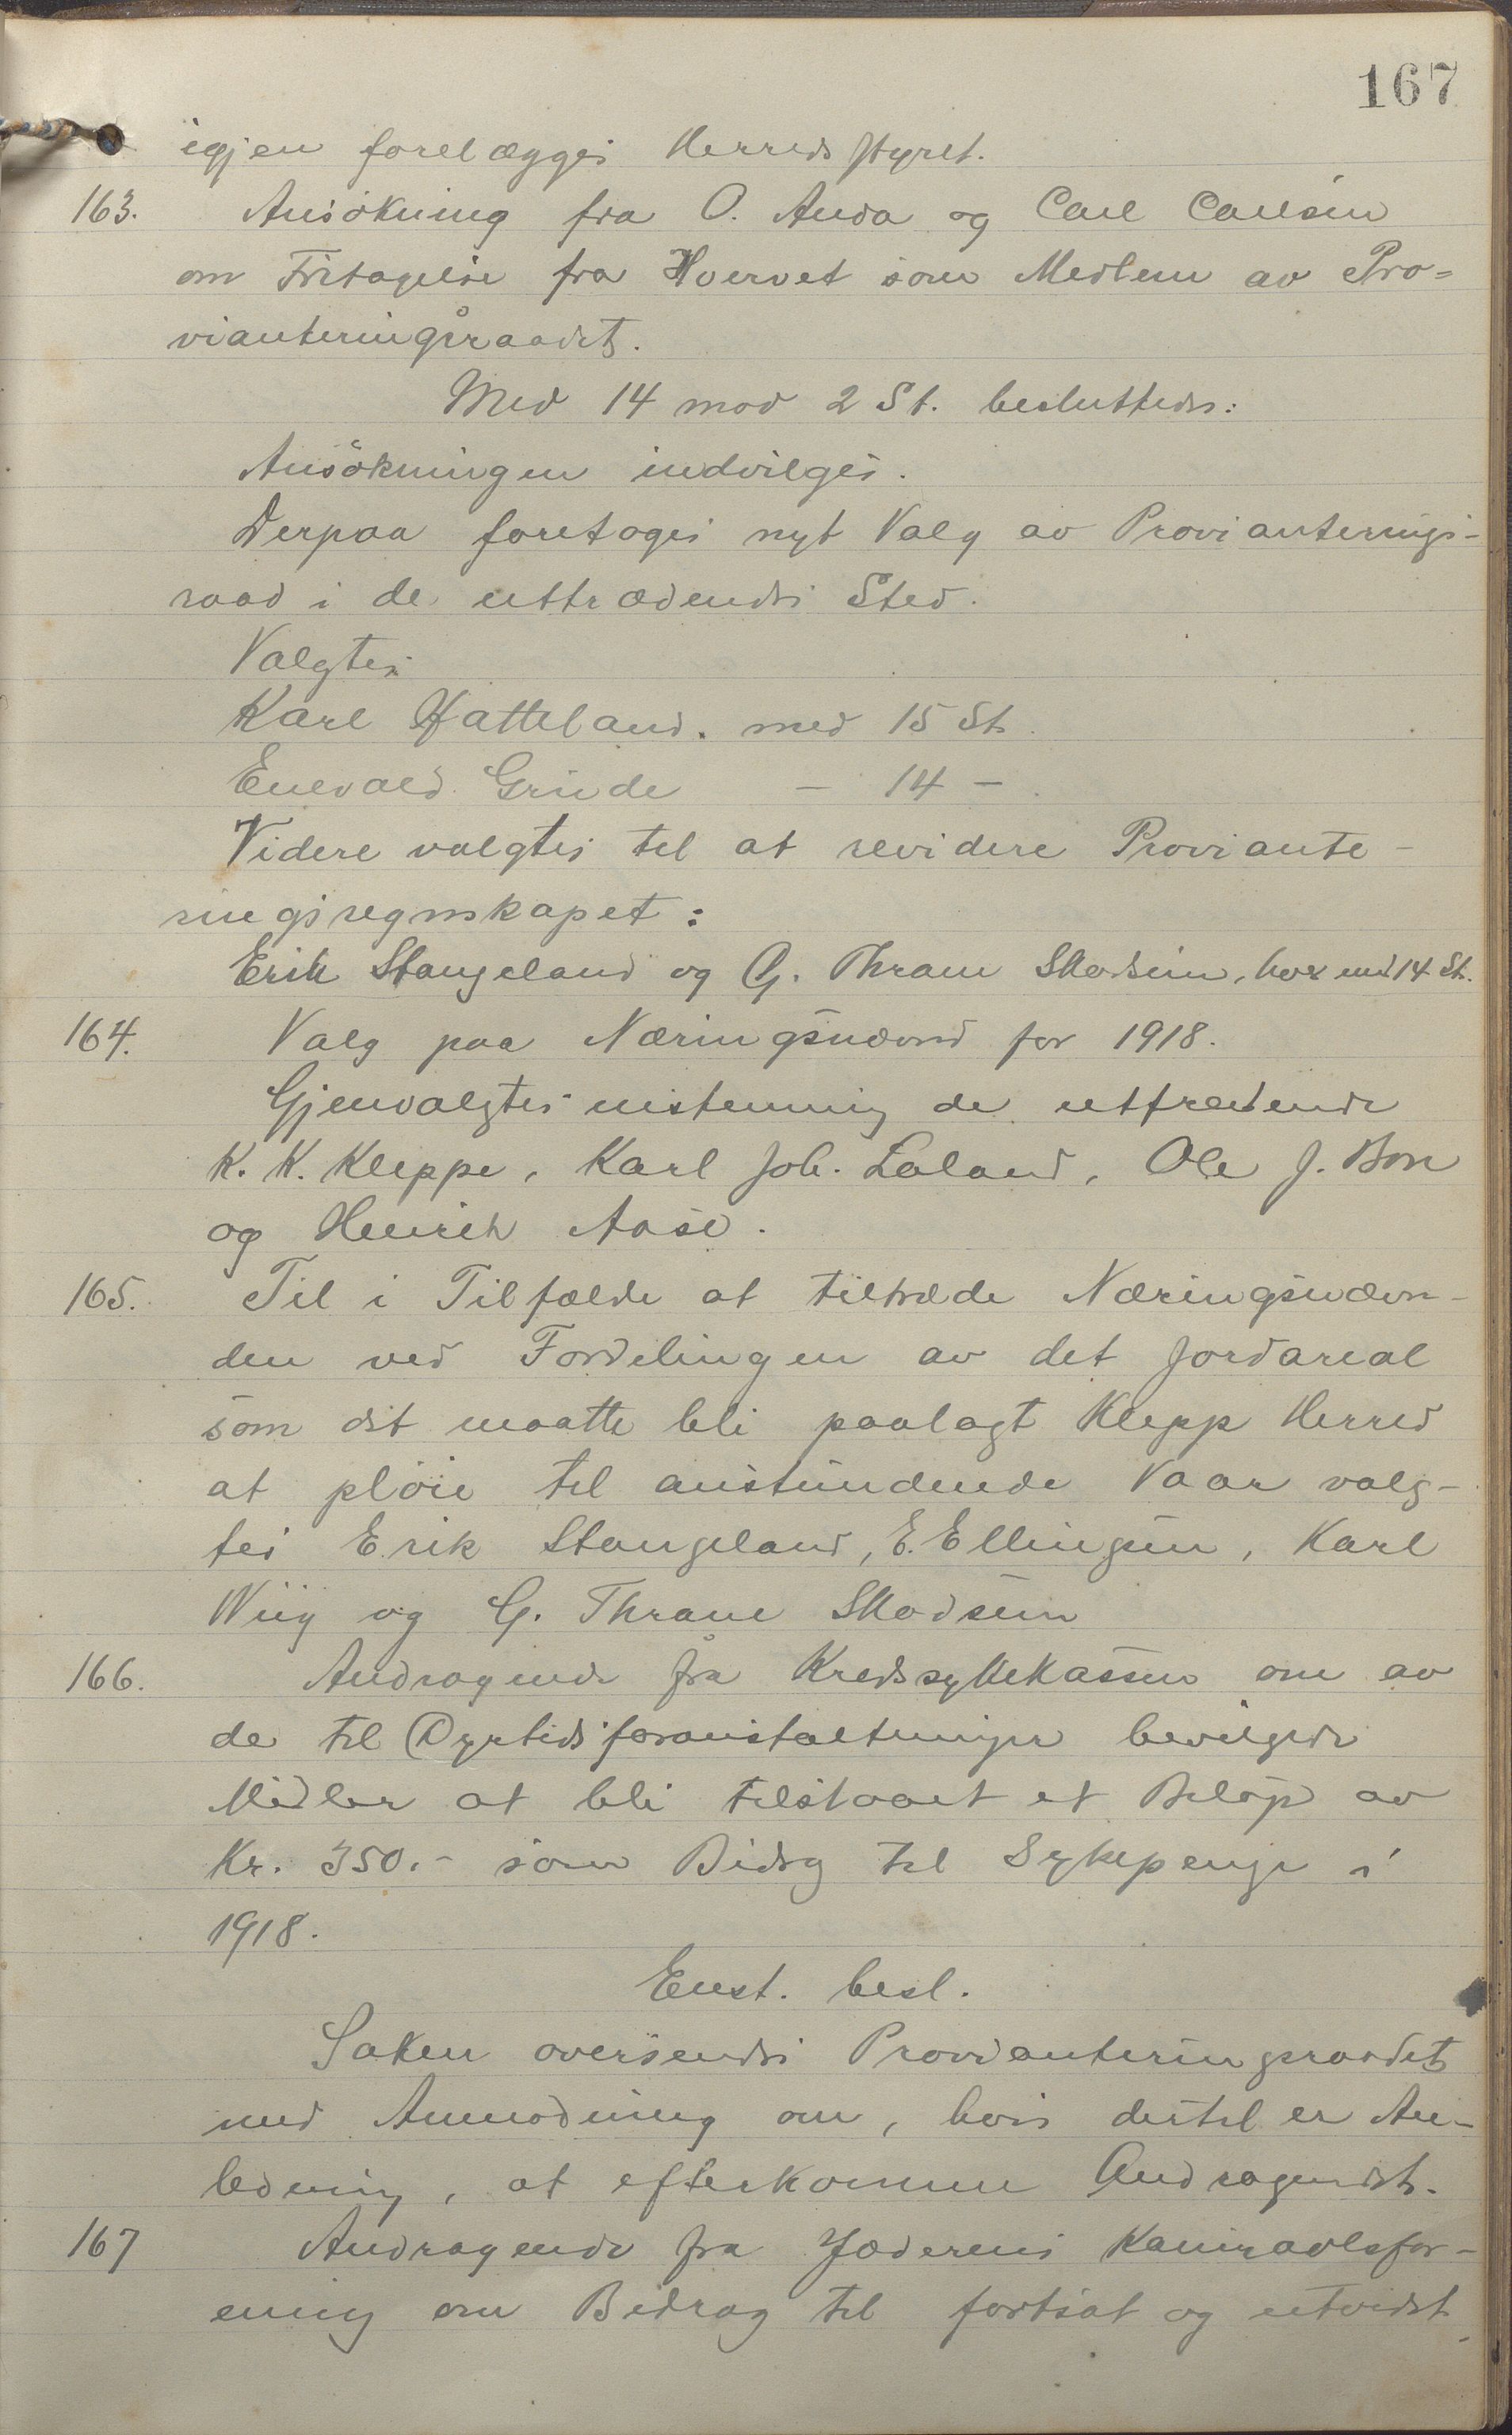 167
igjen forelægges Herredsstyret.
163. Ansökning fra O. Anda og Carl Carlsen
om Fritagelse fra Hvervet som Medlem av Pro=
vianteringsraadet.
Med 14 mod 2 St. besluttedes:
Ansökningen indvilges.
Derpaa foretoges nyt Valg av Provianterings-
raad i de uttrædendes Sted.
Valgtes
Karl Hatteland. med 15 St.
Enevald Grude – 14 –
Videre valgtes til at revidere Proviante-
ringsregnskapet:
Erik Stangeland og G. Thrane Skadsem, hver med 14 St.
164. Valg paa Næringsnævnd for 1918.
Gjenvalgtes enstemmig de uttrædende
K. K. Kleppe, Karl Joh. Laland, Ole J. Bore
og Henrik Aase.
165. Til i Tilfælde at tiltræde Næringsnævn-
den ved Fordelingen av det Jordareal
som det maatte bli paalagt Klepp Herred
at plöie til anstundende Vaar valg-
tes Erik Stangeland, E. Ellingsen, Karl
Wiig og G. Thrane Skadsem
166. Andragende fra Kredssykekassen om av
de til Dyrtidsforanstaltninger bevilgede
Midler at bli tilstaaet et Belöp av
Kr. 350.- som Bidrag til Sykepenge i
1918.
Enst. besl.
Saken oversendes Provianteringsraadet
med Anmodning om, hvis dertil er An-
ledning, at efterkomme Andragendet.
167 Andragende fra Jæderens Kaninavlsfor-
ening om Bidrag til fortsat og utvidet